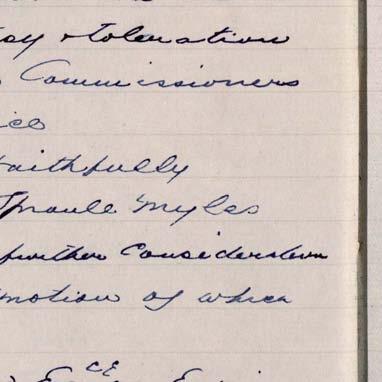 toleration
Commissioners
ice
aithfully
Sproule Myles
further Consideration
motion of which
CE